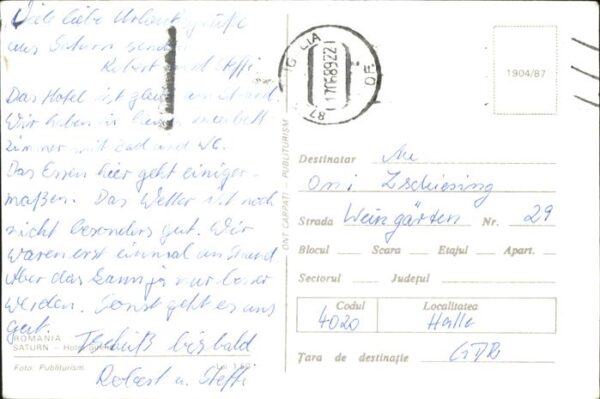 Viele liebe Urlaubsgrüße
aus Saturn senden
Robert und Steffi
Das Hotel ist gleich am Strand.
Wir haben in
zimmer mit Bad und WC.
Das Essen hier geht einiger-
maßen. Das Wetter ist noch
nicht besonders gut. Wir
waren erst einmal am Strand
Aber das kann ja nur besser
werden. Sonst geht es uns
gut.
Tschüß bis bald
Robert u. Steffi
ROMANIA
SATURN – Hotel
Foto: Publiturism
ONT CARPAȚI – PUBLITURISM
17.06.89.22
1904/87
Destinatar An
Omi Zschiesing
Strada Weingärten Nr. 29
Blocul Scara Etajul Apart.
Sectorul Județul
Codul Localitatea
4020 Halle
Țara de destinație GDR